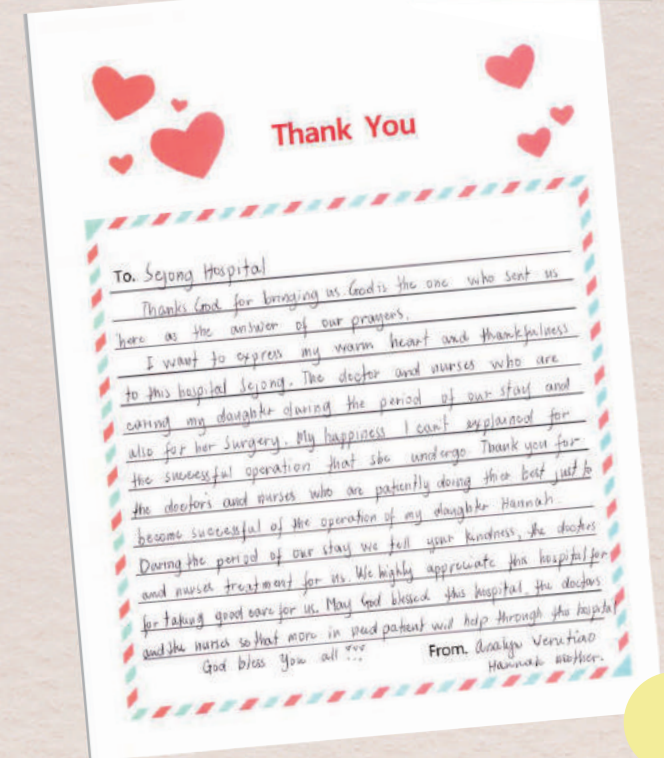 Thank You
To. Sejong Hospital
Thanks God for bringing us. God is the one who sent us
here as the answer of our prayers.
I want to express my warm heart and thankfulness
to this hospital Sejong. The doctor and nurses who are
caring my daughter during the period of our stay and
also for her surgery. My happiness I can't explained for
the successful operation that she undergo. Thank you for
the doctors and nurses who are patiently doing thier best just to
become successful of the operation of my daughter Hannah.
During the period of our stay we fell your kindness, the doctors
and nurses treatment for us. We highly appreciate this hospital for
for taking good care for us. May God blessed this hospital, the doctors
and the nurses so that more in need patient will help through this hospital
God bless you all !!!
From. Analyn Verutiao
Hannah mother.